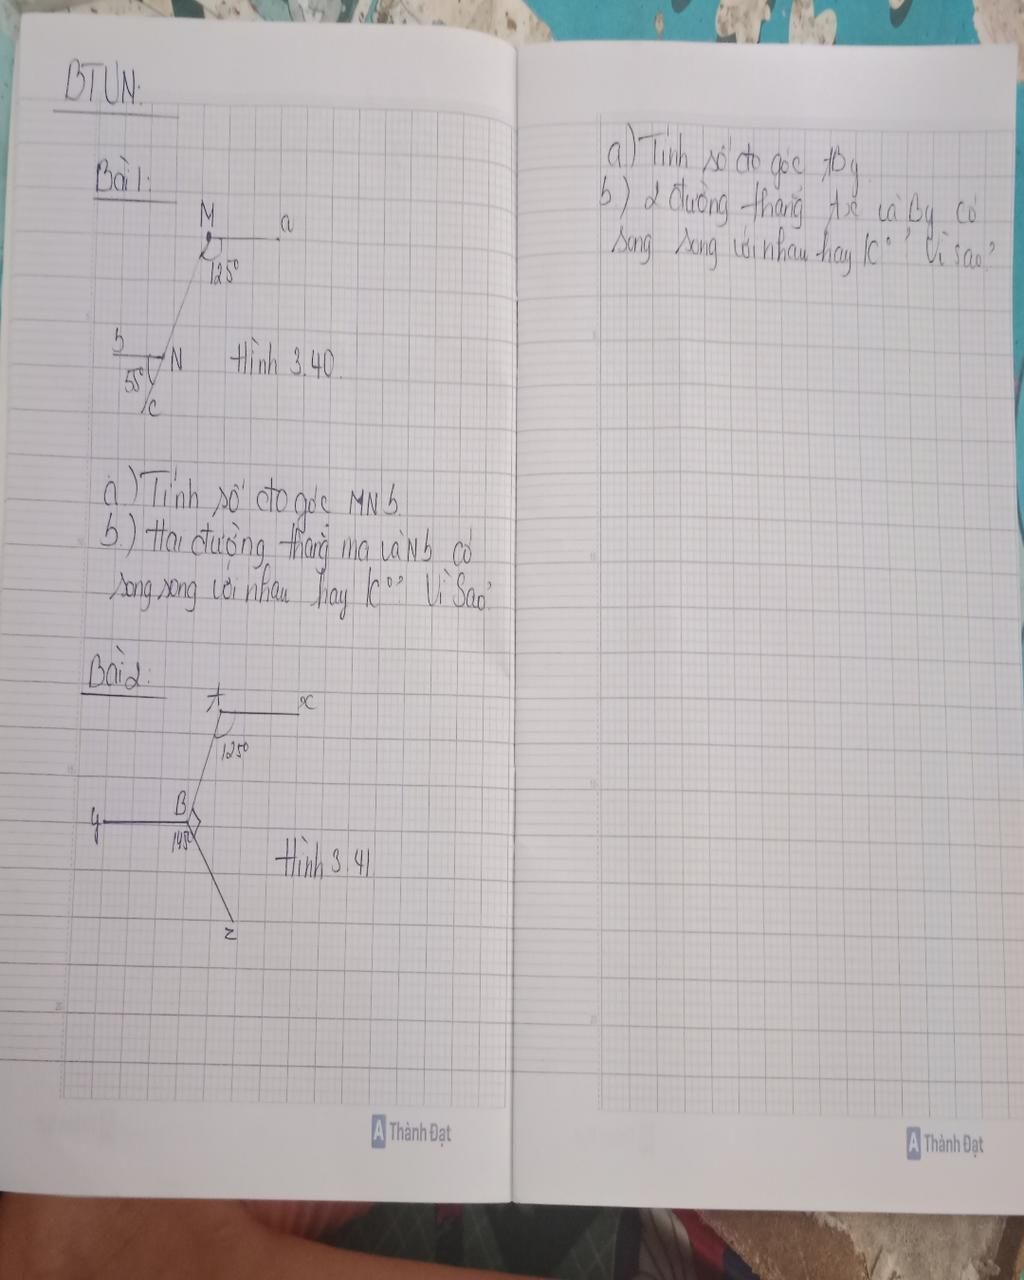 BTVN:
Bài 1:
M
a
125°
b
N
55°
c
Hình 3.40
a) Tính số đo góc MNb
b) Hai đường thẳng ma và Nb có
song song với nhau hay k°? Vì Sao?
Bài 2:
A
x
125°
B
y
145°
Hình 3.41
z
Thành Đạt
a) Tính số đo góc ABy
b) 2 đường thẳng Ax và By có
song song với nhau hay k°? Vì sao?
Thành Đạt